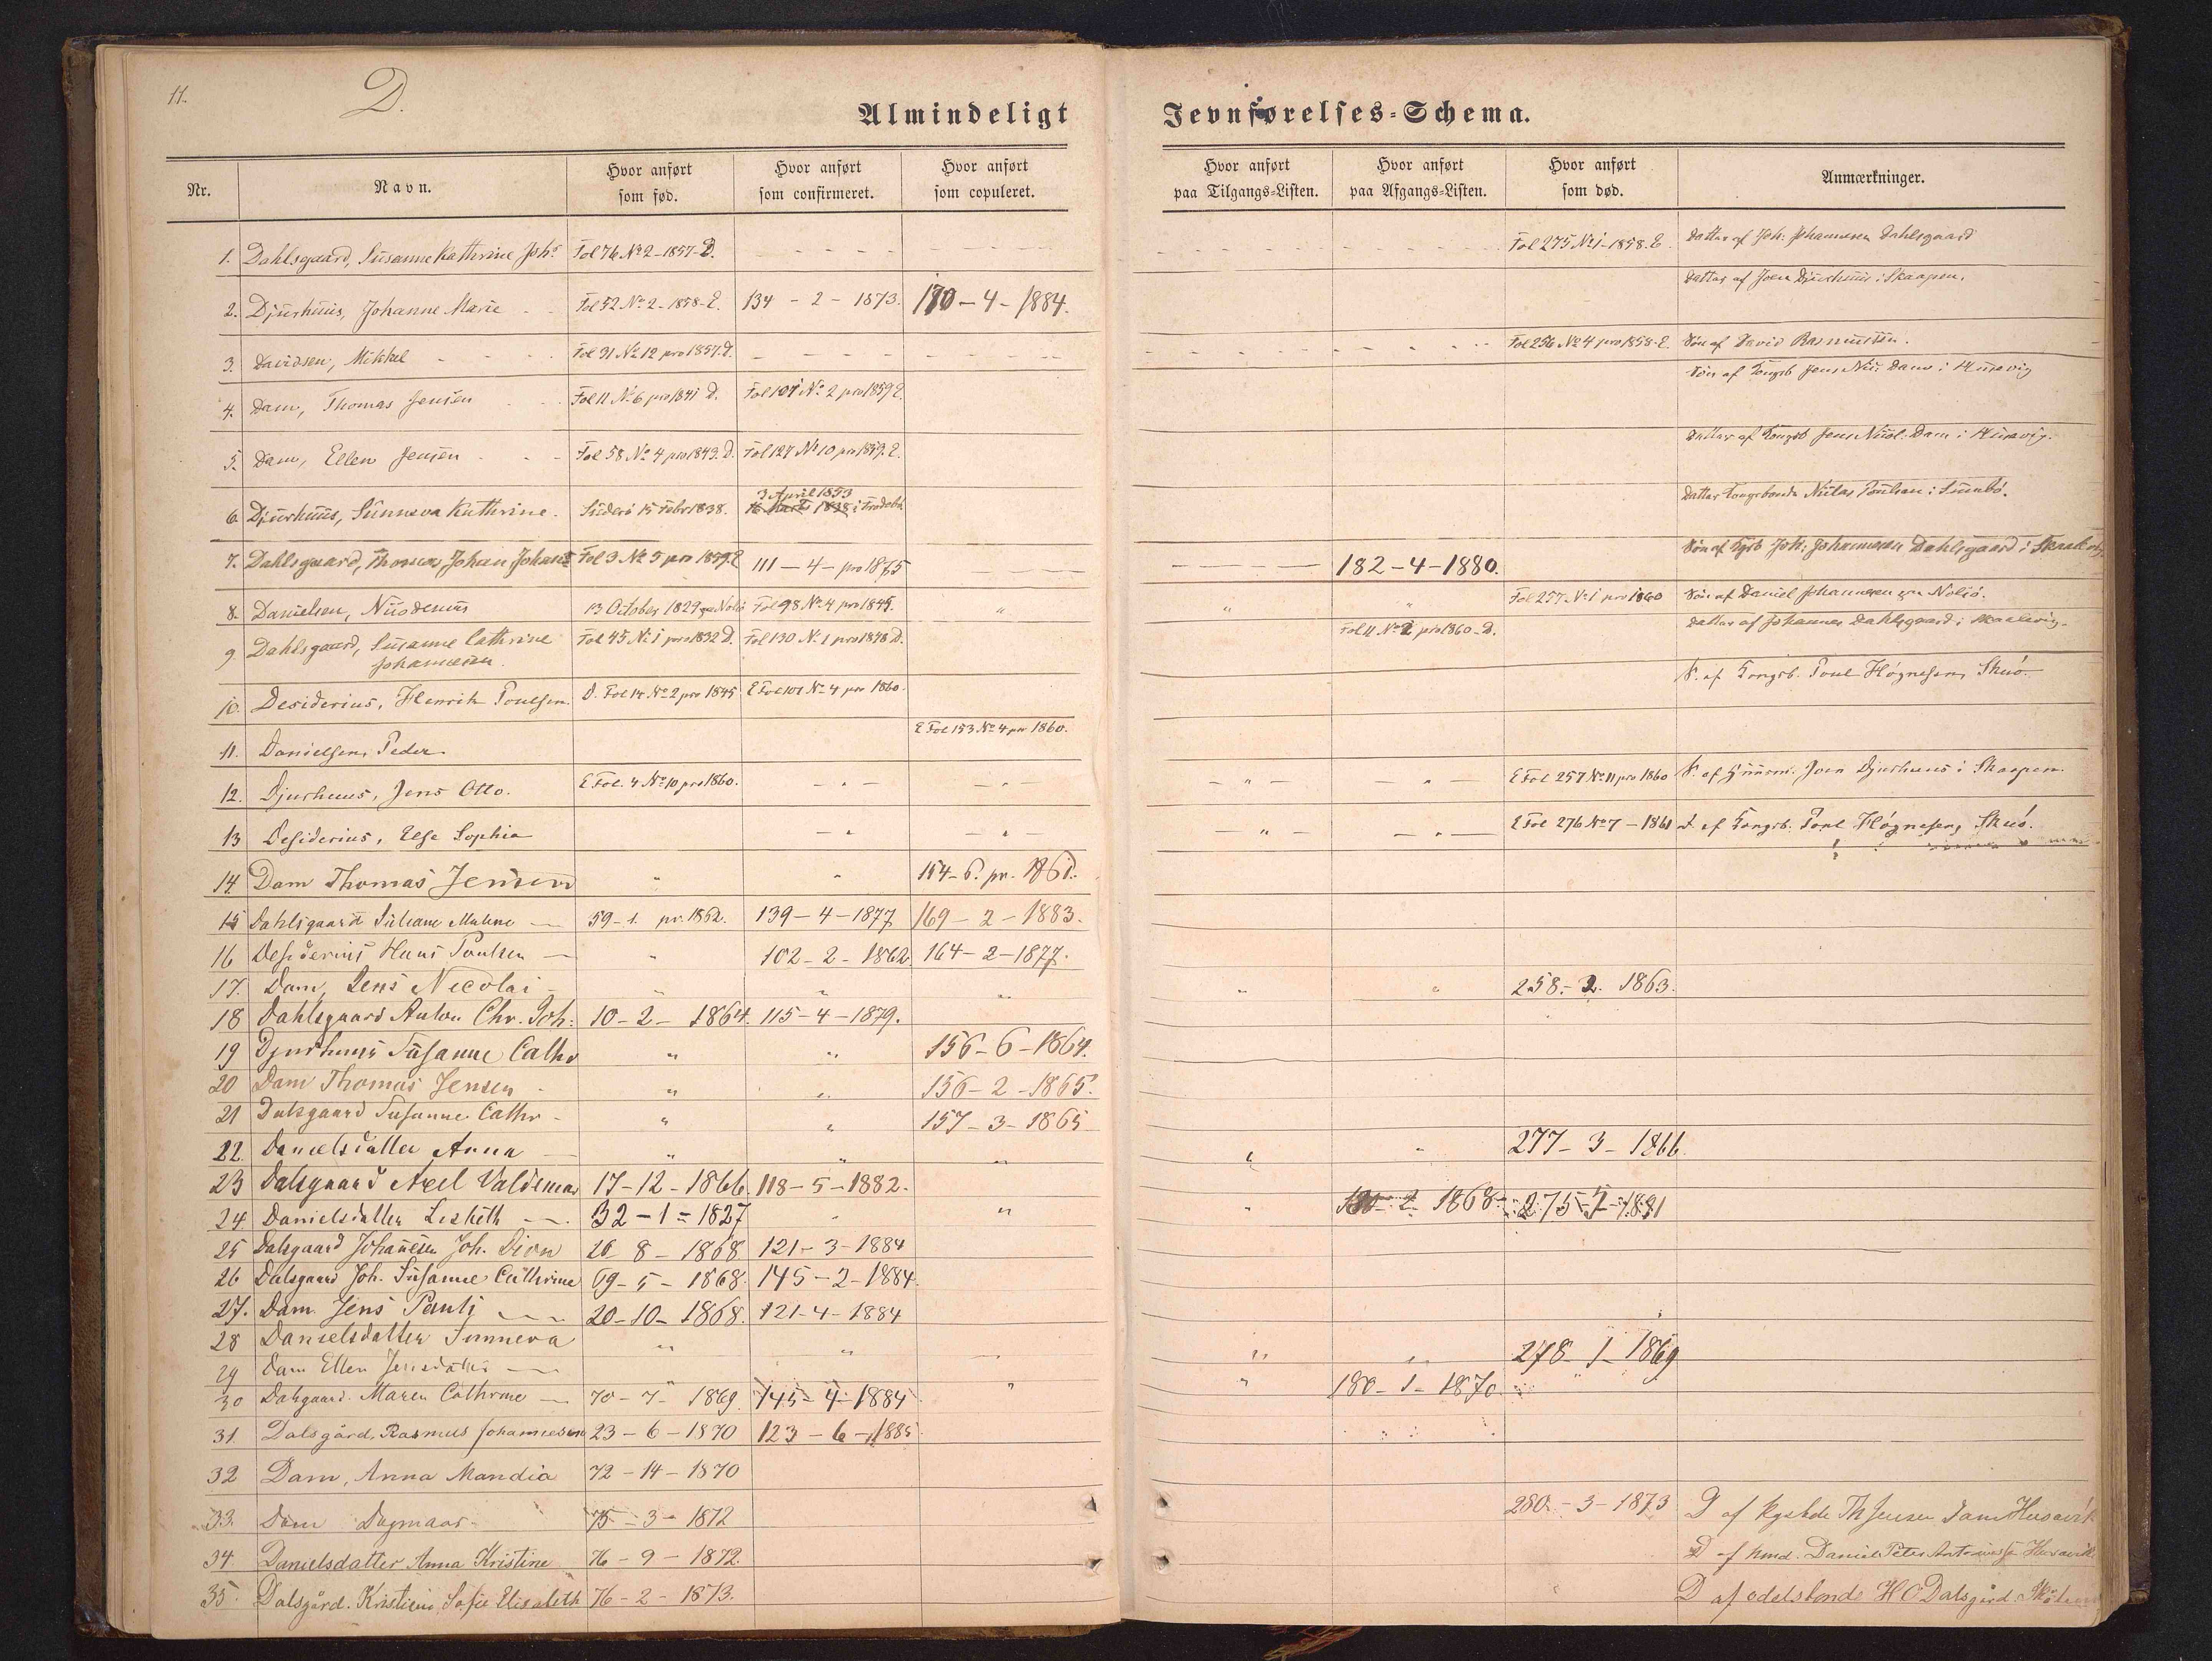 11.
D.
Almindeligt Jevnførelses-Schema.
Nr. | Navn. | Hvor anført som fød. | Hvor anført som confirmeret. | Hvor anført som copuleret. | Hvor anført paa Tilgangs-Listen. | Hvor anført paa Afgangs-Listen. | Hvor anført som død. | Anmærkninger.
1. Dahlsgaard, Susanne Kathrine Johs Fol 76 No 2-1857-D. Fol 275 No 1-1858.E. Datter af Joh: Johannesen Dahlsgaard
2. Djurhuus, Johanne Marie Fol 52 No 2-1858-E. 134 - 2 - 1873. 170 - 4 - 1884. Datter af Joen Djurhuus i Skaapen.
3. Davidsen, Mikkel Fol 31 No 12 pro 1857.D. Fol 256 No 4 pro 1858-E. Søn af David Rasmussen.
4. Dam, Thomas Jensen Fol 11 No 6 pro 1841 D. Fol 101 No 2 pro 1859 E. Søn af Kongsb Jens Nic: Dam i Husevig
5. Dam, Ellen Jensen Fol 58 No 4 pro 1843.D. Fol 127 No 10 pro 1859.E. Datter af Kongsb Jens Nicol. Dam i Husevig.
6. Djurhuus, Sunneva Kathrine. Suderö 15 Febr 1838. 3 April 1853 i Frodebö Datter Kongsbonde Niclas Poulsen i Sumbö.
7. Dahlsgaard, Thomas Johan Johans Fol 3 No 5 pro 1859.E 111 - 4 - pro 1875 182-4-1880. Søn af Kgsb Joh: Johannesen Dahlsgaard i Skaalevig
8. Danielsen, Nicodemus 13 October 1829 paa Nolsö Fol 98 No 4 pro 1845. " " " Fol 257 No 1 pro 1860 Søn af Daniel Johannesen paa Nolsö.
9. Dahlsgaard, Susanne Cathrine Johannesen. Fol 45 No 1 pro 1832 D. Fol 130 No 1 pro 1848 D. Fol 11 No 2 pro 1860-D. Datter af Johannes Dahlsgaard i Skaalevig.
10. Desiderius, Henrik Poulsen. D. Fol 14 No 2 pro 1845 E Fol 101 No 4 pro 1860. S. af Kongsb. Poul Høgnesen, Skuö.
11. Danielsen, Peder. E Fol 153 No 4 pro 1860.
12. Djurhuus, Jens Otto. E Fol. 4 No 10 pro 1860. E Fol 257 No 11 pro 1860 S. af Huusm. Joen Djurhuus i Skaapen.
13 Desiderius, Else Sophia E Fol 276 No 7 - 1861 D. af Kongsb. Poul Høgnesen, Skuö.
14. Dam Thomas Jensen " " 154-6. pr. 1861.
15 Dahlsgaard Juliane Malene 59-1. pr. 1862. 139-4-1877 169-2-1883.
16 Desiderius Hans Poulsen " 102-2-1862. 164-2-1877.
17. Dam, Jens Nicolai " " " " " 258.-2. 1863.
18 Dahlsgaard Anton Chr. Joh: 10-2-1864. 115-4-1879.
19 Djurhuus Susanne Cathr " " 156-6-1864.
20 Dam Thomas Jensen " " 156-2-1865.
21 Dalsgaard Susanne Cathr " " 157-3-1865
22. Danielsdatter Anna " " " " " 277-3-1866.
23 Dalsgaard Axel Valdemar 17-12-1866. 118-5-1882.
24. Danielsdatter Lisbeth 32-1-1827 " " " 180-2 1868. 275-7-1881
25 Dalsgaard Johanesen Joh. Dion 20 8-1868 121-3-1884
26 Dalsgaard Joh. Susanne Cathrine 69-5-1868. 145-2-1884.
27. Dam Jens Pauli 20-10-1868. 121-4-1884
28 Danielsdatter Sunneva " " " " 278-1-1869
29 Dam Ellen Jensdatter " " " " 180-1-1870. "
30 Dalsgaard. Maren Cathrine 70-7-1869. 145-4-1884
31. Dalsgård, Rasmus Johannesen 23-6-1870 123-6-1885
32 Dam, Anna Mandia 72-14-1870
33. Dam Dagmaar 75-3-1872 280.-3-1873 D af Kgsbde Th Jensen Dam Husavik
34. Danielsdatter Anna Kristine 76-9-1872. D af hmd. Daniel Peter Husavik
35. Dalsgård. Kristiane Sofie Elisabeth 76-2-1873. D af odelsbonde H O Dalsgård.